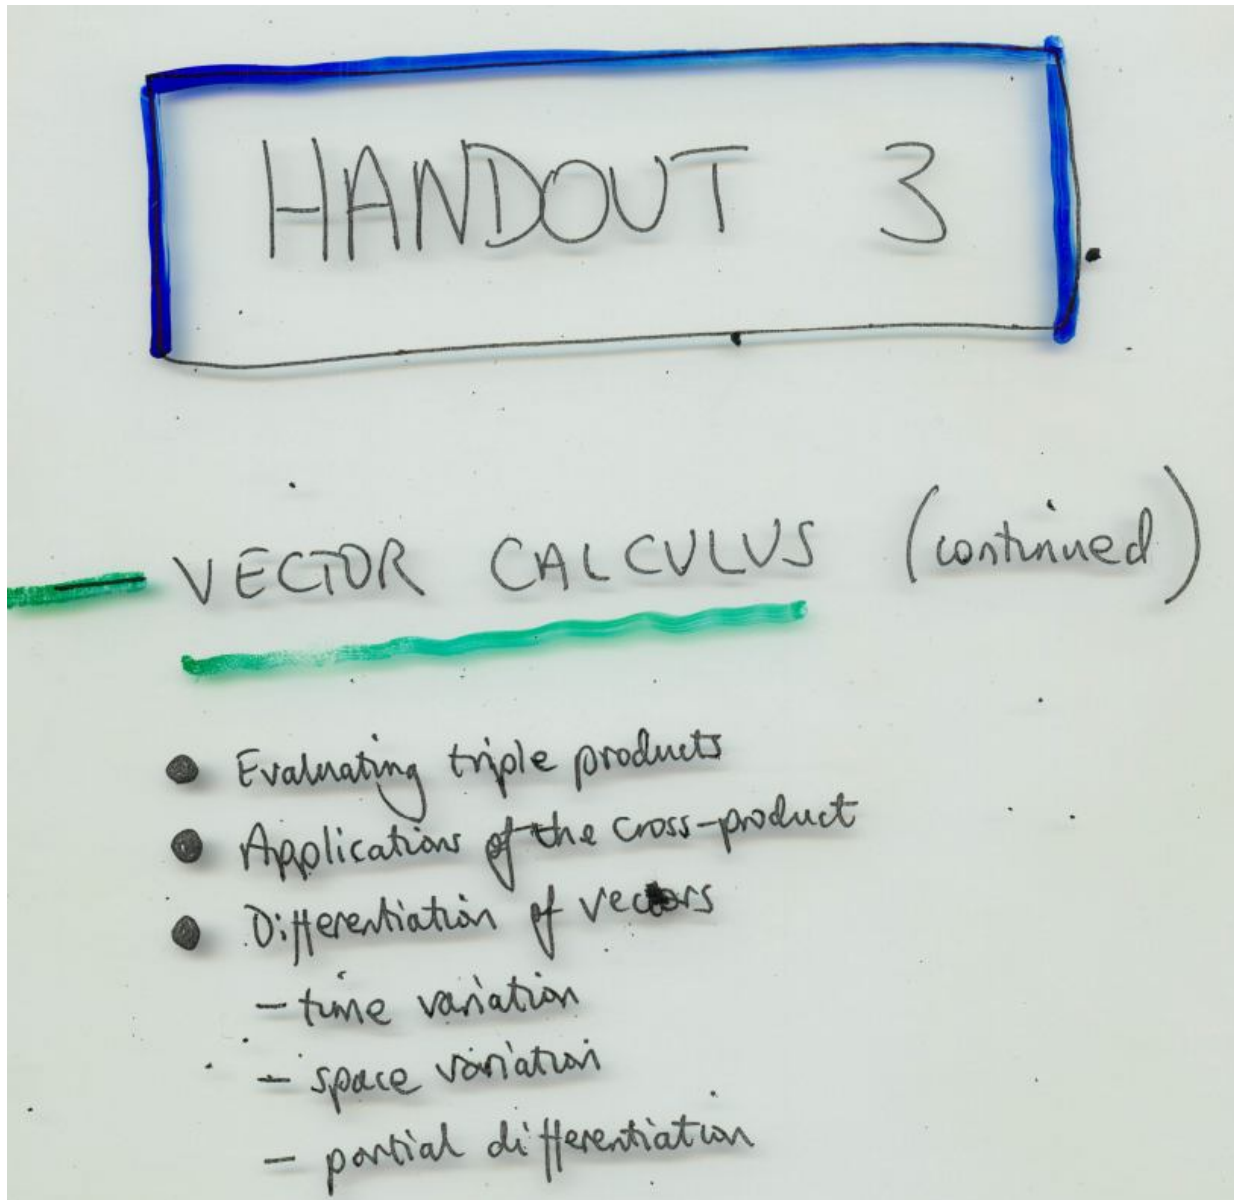 HANDOUT 3
VECTOR CALCULUS (continued)
● Evaluating triple products
● Applications of the cross-product
● Differentiation of vectors
- time variation
- space variation
- partial differentiation